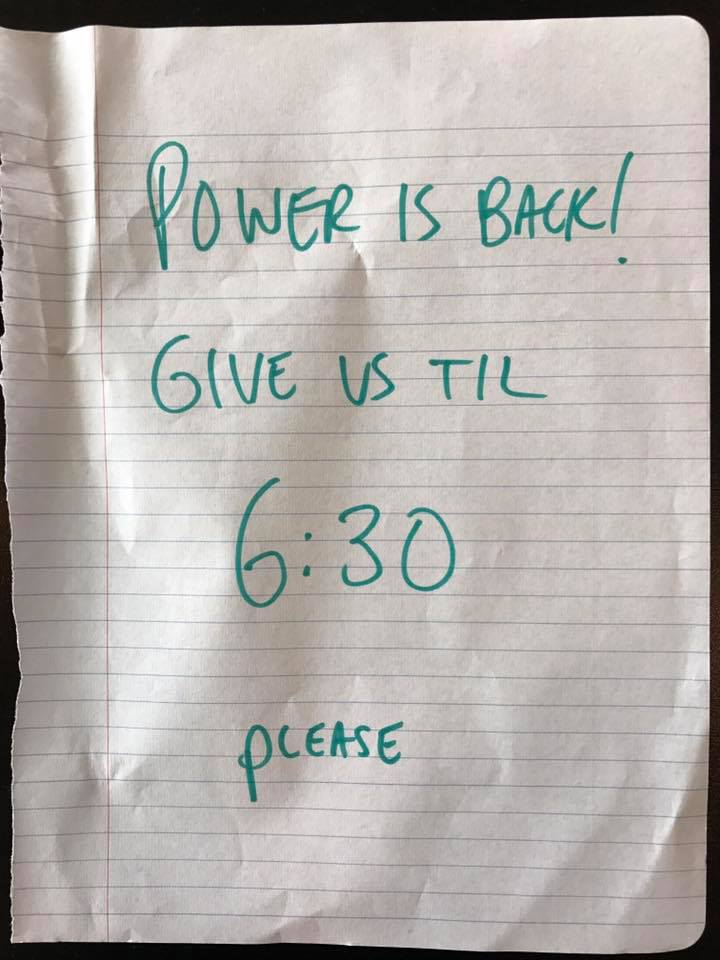 POWER IS BACK!
GIVE US TIL
6:30
PLEASE